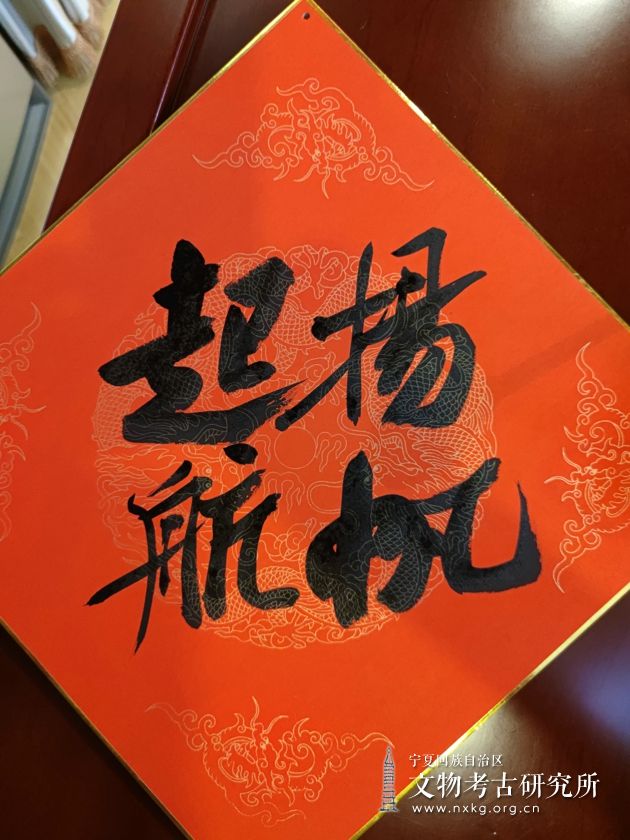 揚帆
起航
宁夏回族自治区
文物考古研究所
www.nxkg.org.cn